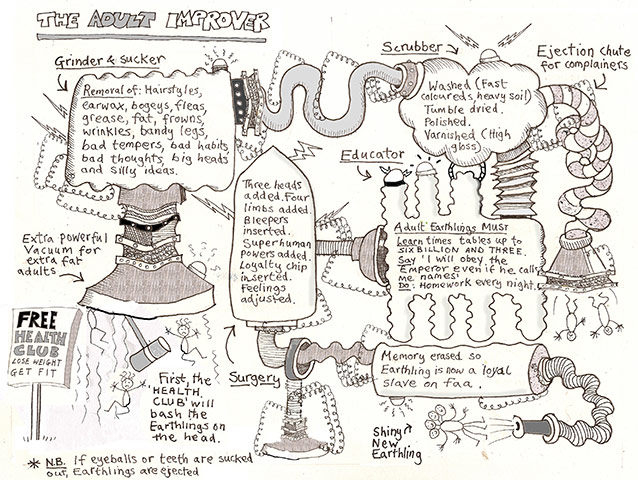 THE ADULT IMPROVER
Grinder & sucker
Removal of: Hairstyles,
earwax, bogeys, fleas,
grease, fat, frowns,
wrinkles, bandy legs,
bad tempers, bad habits
bad thoughts, big heads
and silly ideas.
Scrubber
Washed (Fast
coloureds, heavy soil)
Tumble dried.
Polished.
Varnished (High
gloss)
Ejection chute
for complainers
Educator
Three heads
added. Four
limbs added.
Bleepers
inserted.
Superhuman
powers added.
Loyalty chip
inserted.
Feelings
adjusted.
Adult Earthlings Must
Learn times tables up to
SIX BILLION AND THREE.
Say 'I will obey the
Emperor even if he calls
me names'
Do: Homework every night.
Extra powerful
Vacuum for
extra fat
adults
FREE
HEALTH
CLUB
LOSE WEIGHT
GET FIT
First, the
'HEALTH
CLUB' will
bash the
Earthlings on
the head.
Surgery
Memory erased so
Earthling is now a loyal
slave on Faa.
Shiny
New
Earthling
* N.B. If eyeballs or teeth are sucked
out, Earthlings are ejected